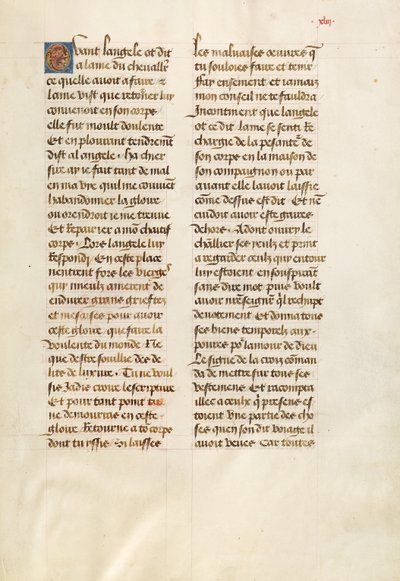 xliij
Quant langele ot dit
a lame du chevallr
ce quelle avoit a faire et
lame vist que retorner luy
convenoit en son corps
elle fut moult doulente
Et en plourant tendremt
dist al angele ha cher
sire ay ie fait tant de mal
en ma vie quil me couvient
habandonner la gloire
ou orendroit ie me treuve
Et Repairier a mon chaitif
corps Lors langele luy
Respondi En ceste place
nentrent fors les vierges
qui mieulx amerent de
endurer grans grieftez
et mesaises pour avoir
ceste gloire que faire la
voulente du monde Ne
que destre souillie des de
lits de luxure Tu ne voul
sis Jadis croire lescripture
Et pour tant point tu
ne demourras en ceste
gloire Retourne a to corps
dont tu yssis Si laisses
les malvaises oeuvres q
tu souloies faire et tenir
Fay ensement et iamais
mon conseil ne te fauldra
Incontinent que langele
ot ce dit lame se senti Re
chargie de la pesante de
son corps en la maison de
son compaignon ou par
avant elle lavoit laissie
come dessus est dit Et ne
cuidoit avoir este gaires
dehors Adont ouvry le
chllier ses yeulx et print
a regarder ceulx qui entour
luy estoient en souspirant
sans dire mot puis voult
avoir nreseignr quil rechupt
devotement Et donna tous
ses biens temporelz aux
pouvres por lamour de dieu
Le signe de la croix coman
da de mettre sur tous ses
vestemens Et racompta
illec a ceulx qui presens es
toient une partie des cho
ses quen son dit voiage il
avoit veues Car toutes